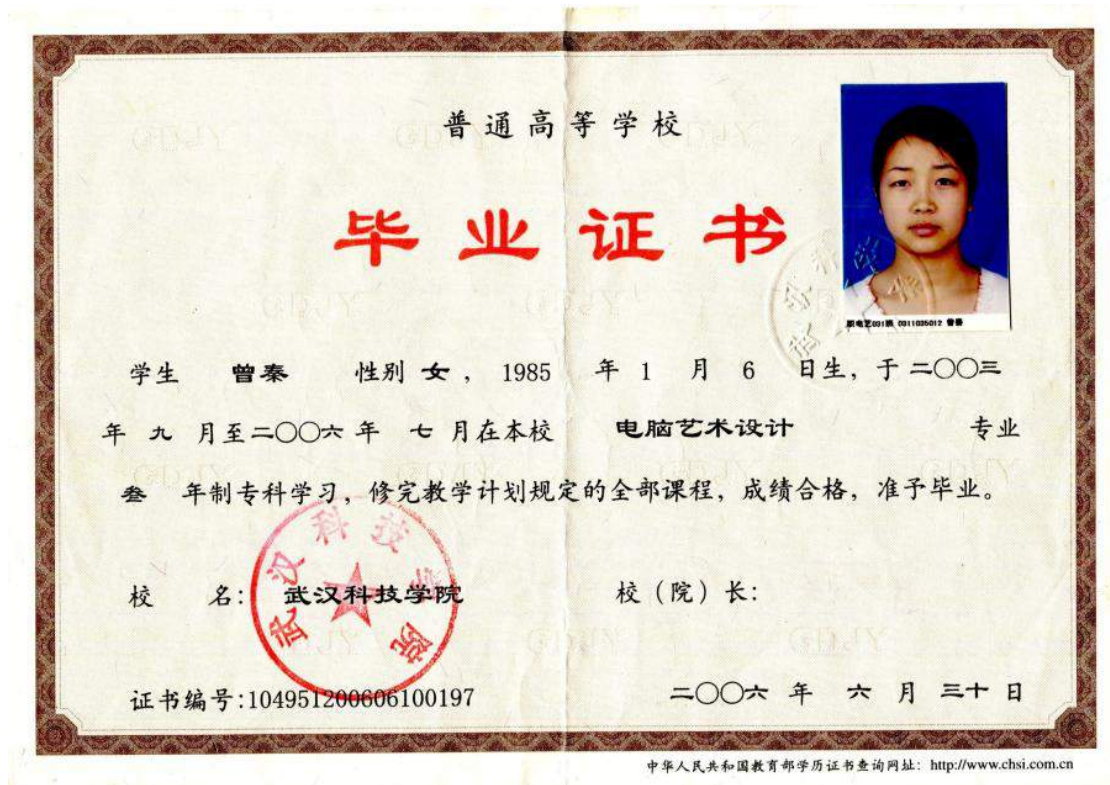 普通高等学校
毕业证书
职电艺031班 0311035012 曾秦
学生 曾秦 性别 女， 1985 年 1 月 6 日生，于二〇〇三
年 九 月至二〇〇六 年 七 月在本校 电脑艺术设计 专业
叁 年制专科学习，修完教学计划规定的全部课程，成绩合格，准予毕业。
武汉科技学院
校 名：武汉科技学院 校（院）长：
证书编号：104951200606100197 二〇〇六 年 六 月 三十 日
中华人民共和国教育部学历证书查询网址：http://www.chsi.com.cn